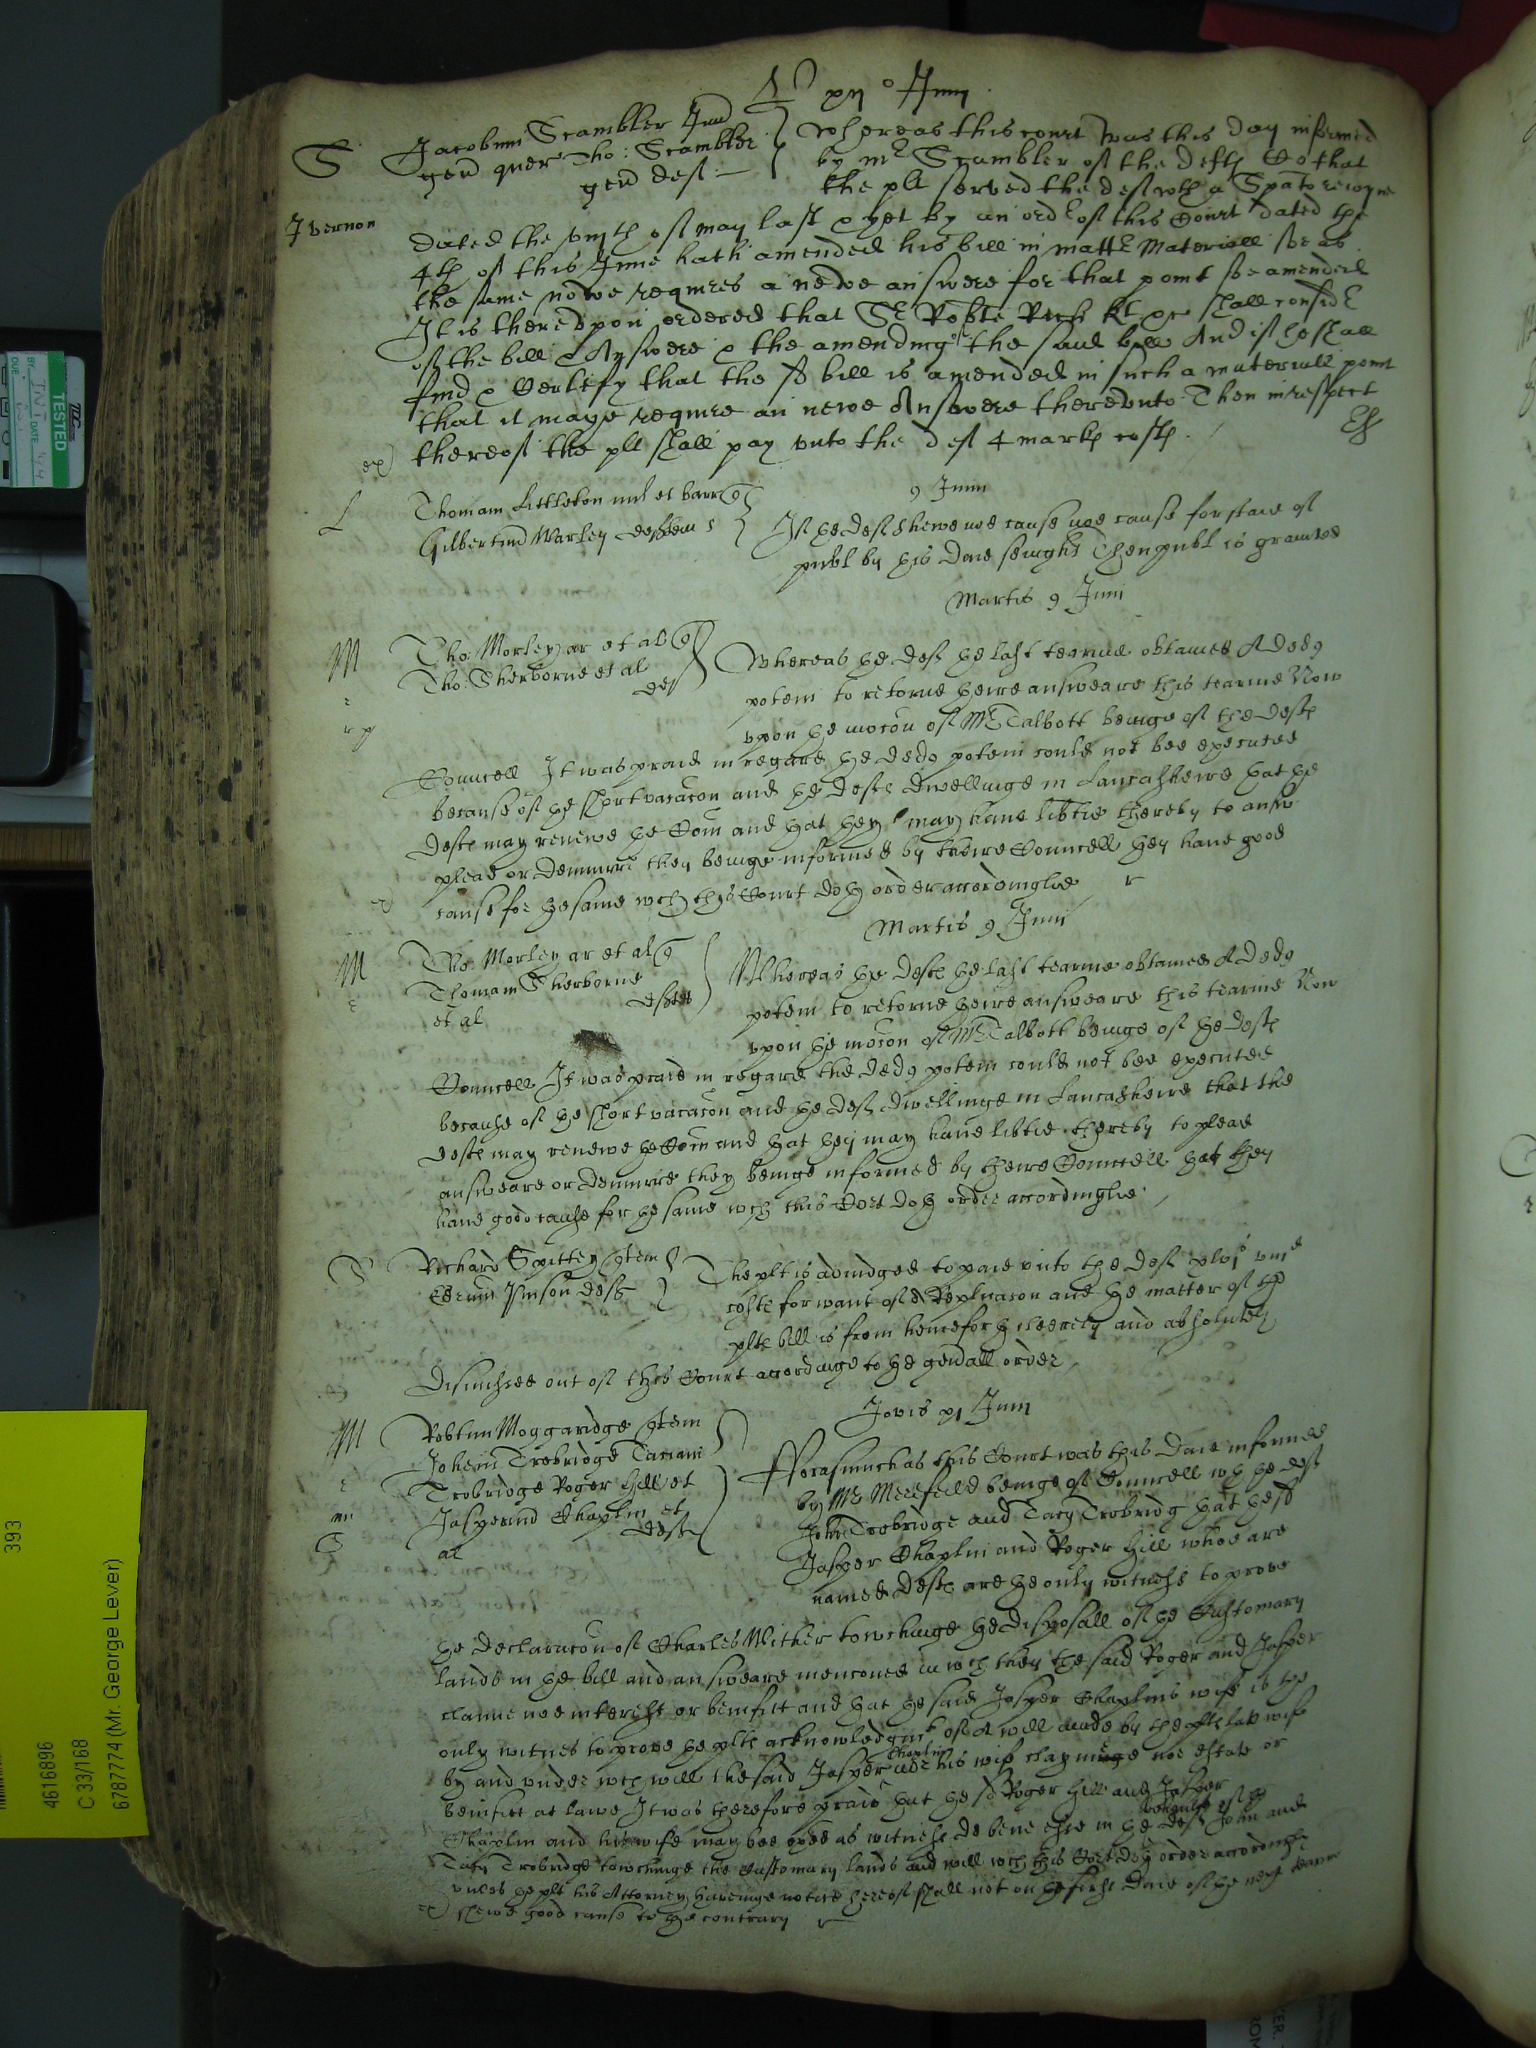 xii° Junii
S Jacobum Scambler Jun
gen quer Tho: Scambler
gen def
Whereas this court was this day informed
by mr Scambler of the defts Co that
the plt served the deft wth a Spa to reioyne
J vernon
dated the viijth of may last & yet by an order of this Court dated the
4th of this June hath amended his bill in matter Materiall soe as
the same nowe requires a newe answere for that point soe amended
It is therevpon ordered that Sr Robte Rich kt &c shall consider
of the bill & Answere & the amending of the said bill And if he shall
find & Certefy that the sd bill is amended in such a materiall point
that it maye require an newe Answere therevnto Then in respect
thereof the plt shall pay vnto the def 4 marks costs
ex
9 Junii
L Thomam Littleton mil et barr
Gilbertum Warley
If the deft shewe noe cause noe cause for staie of
publ by this daie sevnight Then publ is graunted
Martis 9 Junii
M Tho: Morley ar et al
Tho: Sherborne et al
def
Whereas the deft the last tearme obtained A ded
potem to retorne theire answeare this tearme Now
vpon the mocon of Mr Talbott beinge of the defts
Councell It was praied in regard the ded potem could not bee executed
because of the short vacacon and the defts dwellinge in Lancasheire that the
defts may renewe the Com and that they may haue libtie thereby to answ
plead or demurre they beinge informed by theire Councell they haue good
cause for the same wch this Court doth order accordinglie
Martis 9 Junii
M Tho: Morley ar et al
Thomam Sherborne
et al
Whereas the defts the last tearme obtained A ded
potem to retorne theire answeare this tearme Now
vpon the mocon of Mr Talbott beinge of the defts
Councell It was praied in regard the ded potem could not bee executed
because of the short vacacon and the defts dwellinge in Lancasheire that the
defts may renewe the Com and that they may haue libtie thereby to plead
answeare or demurre they beinge informed by theire Councell that they
haue good cause for the same wch this Cort doth order accordinglie
S Richard Spittey
Edrum
def
The plt is adiudged to paie vnto the deft
costs for want of A Replicacon and the matter of the
plts bill is from henceforth cleerely and absolutely
dismissed out of this Court accordinge to the genall order
Jovis xi Junii
M Robtum Moggaridge
Johem Trobridge Taciam
Trobridge Roger Hill et
Jasperum Chaplin et
al
Forasmuch as this Court was this daie informed
by Mr Merefeild beinge of Councell wth the deft
John Trobridge and Tacy Trobridg that the sd
Jasper Chaplin and Roger Hill whoe are
named defts are the only witnesses to prove
the declaracon of Charles Mither towchinge the disposall of the Customary
lands in the bill and answeare menconed in wch they the said Roger and Jasper
clayme noe interest or benifitt and that the said Jasper Chaplins wife is the
only witnes to prove the plts acknowledgmt of A will made by the plts late wife
by and vnder wch will the said Jasper Chaplin nor his wife clayminge noe estate or
benifitt at lawe It was therefore praied that the sd Roger Hill and Jasper
Chaplin and his wife may bee exed as witnesses de bene esse in the behalfe of the deft John and
Tacy Trobridge towchinge the Customary lands and will wch this Cort doth order accordinglie
vnles the plt his Attorney haveinge notice hereof shall not on the first daie of the next tearme
shewe good cause to the contrary
ex
TESTED
393
4616896
C 33/168
6787774 (Mr. George Lever)